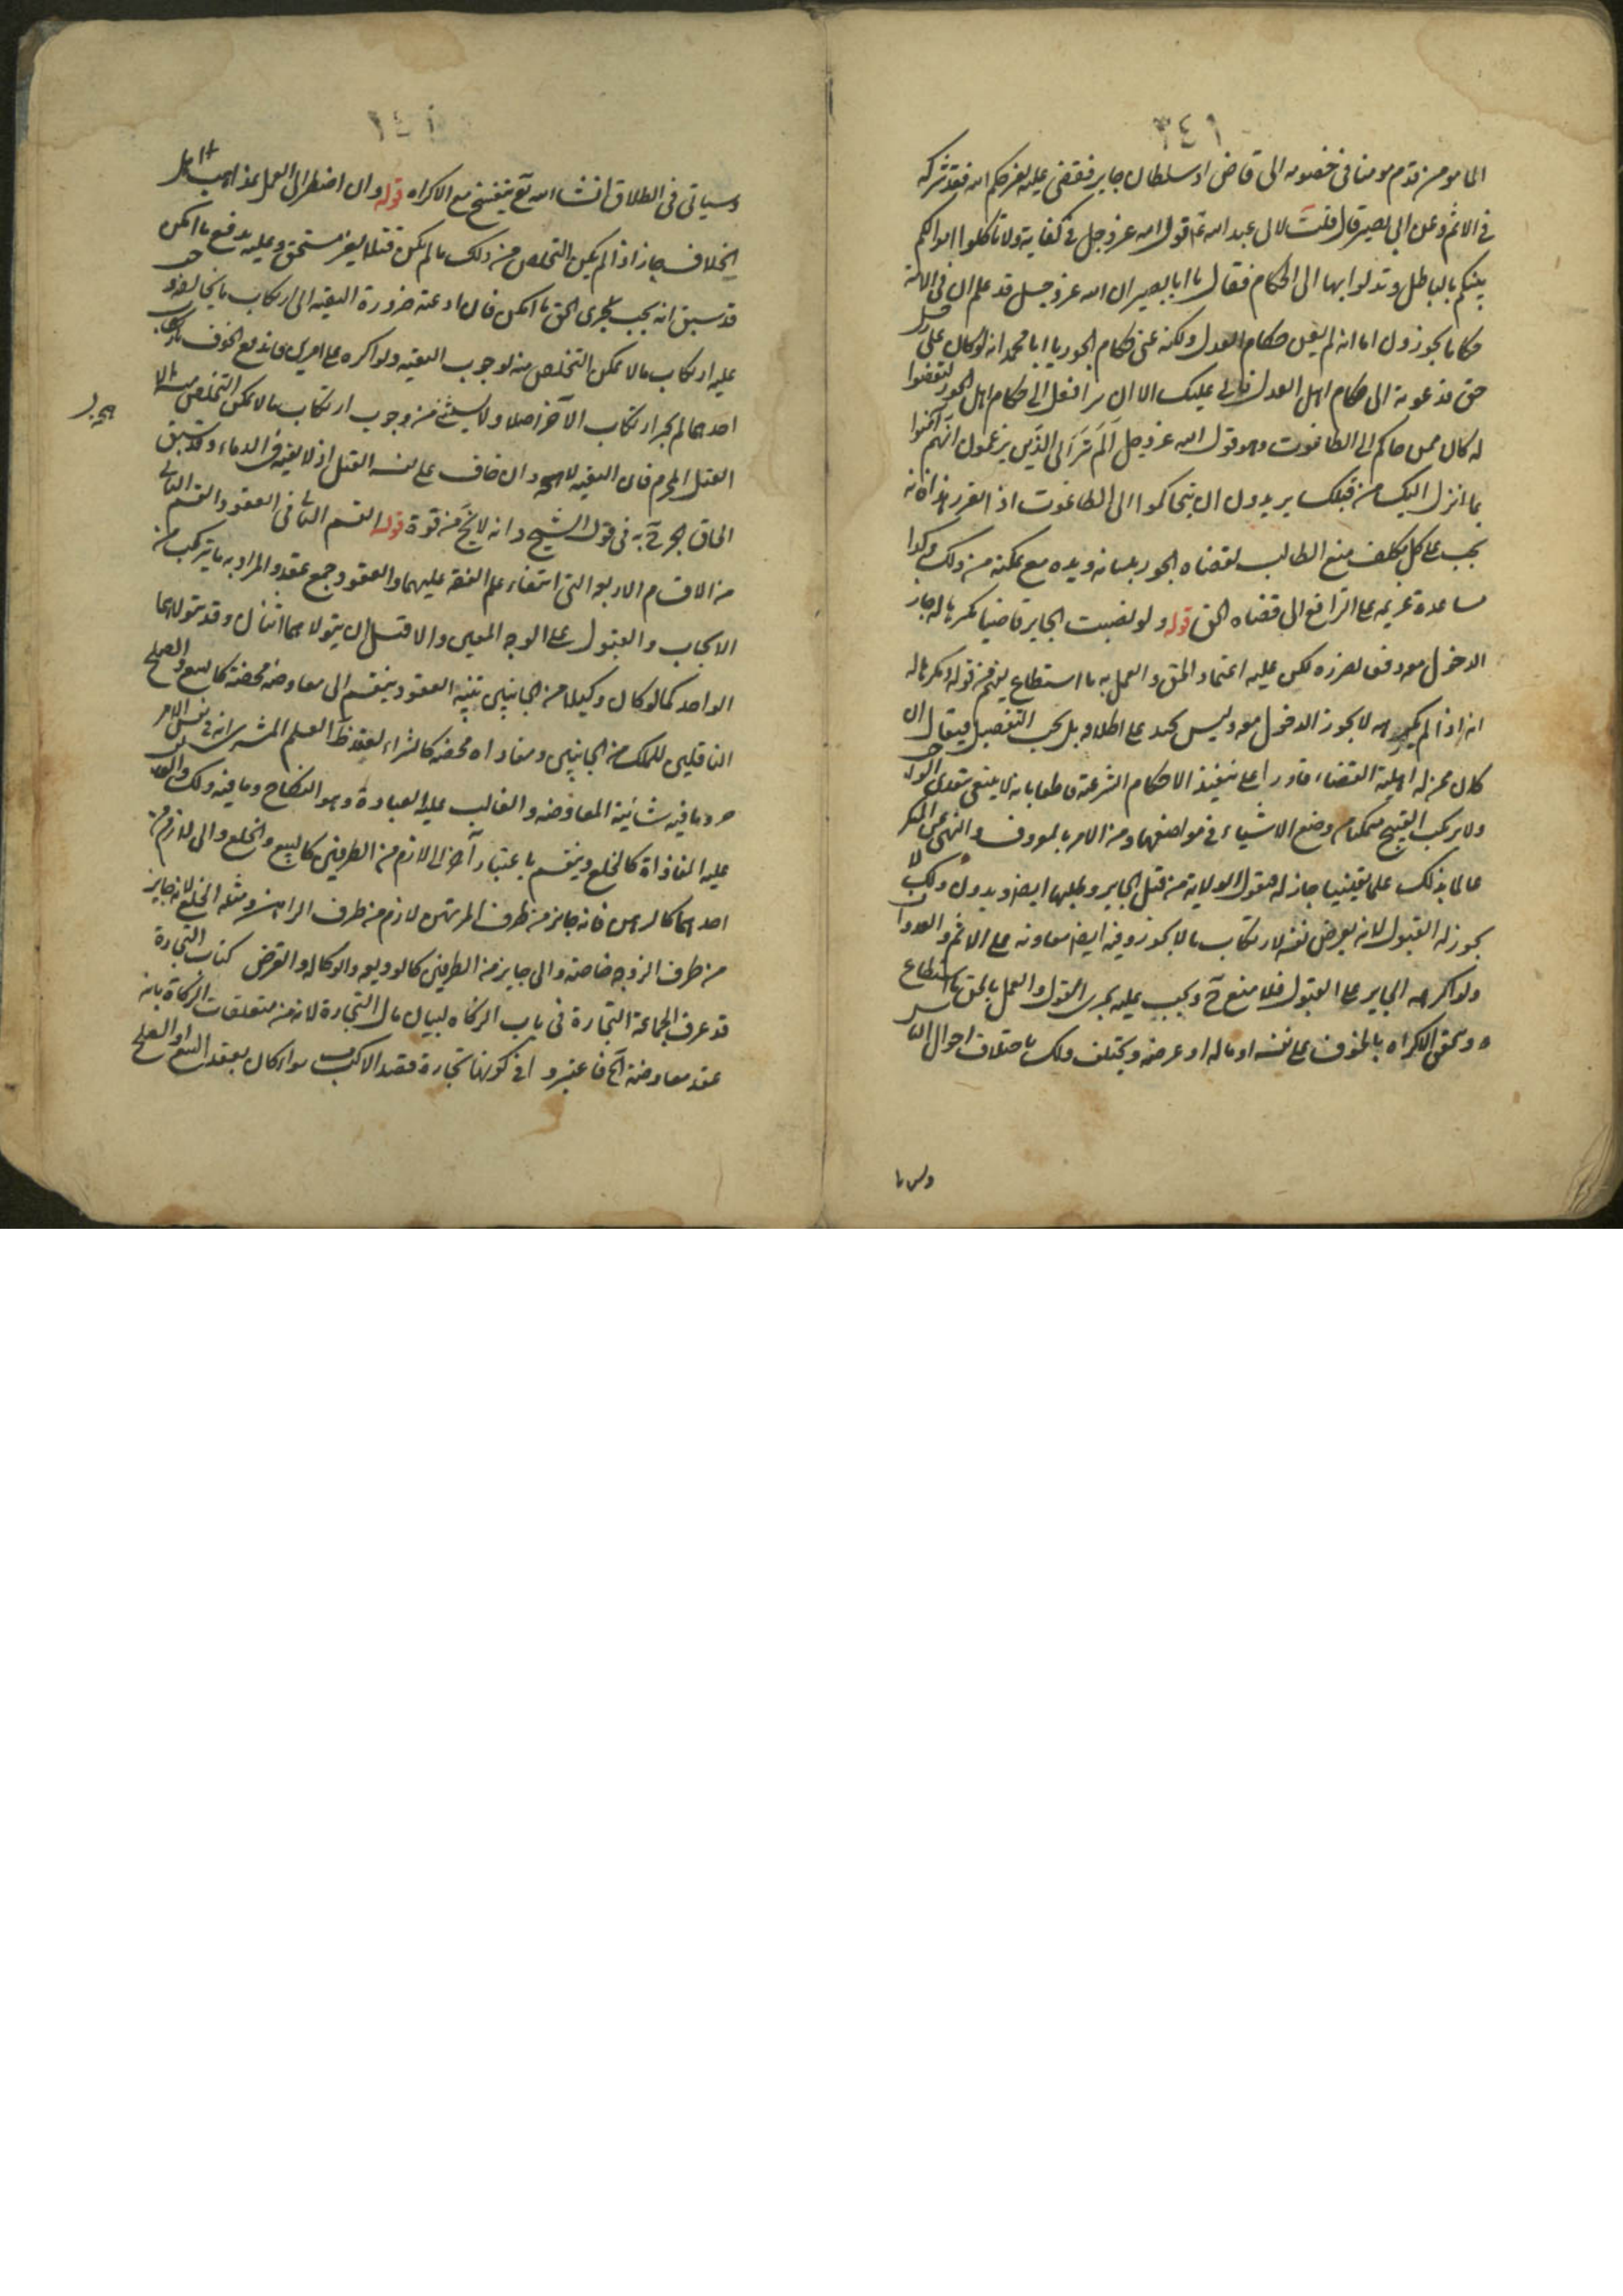 ٣٤١
ايما مومن قدم مومنا فى خصومه الى قاض او سلطان جاير فقضى عليه بغير حكم الله فقد شركه
فى الاثم وعن ابى بصير قال قلت لابى عبد الله ع قول الله عز وجل فى كتابه ولا تاكلوا اموالكم
بينكم بالباطل وتدلوا بها الى الحكام فقال يا ابا بصير ان الله عز وجل قد علم ان فى الامة
حكاما يجورون اما انه لم يعن حكام العدل ولكنه عنى حكام الجور يا ابا محمد انه لو كان على رجل
حق فدعوته الى حكام اهل العدل فابى عليك الا ان يرافعك الى حكام اهل الجور ليقضوا
له كان ممن حاكم الى الطاغوت وهو قول الله عز وجل الم تر الى الذين يزعمون انهم امنوا
بما انزل اليك من قبلك يريدون ان يتحاكموا الى الطاغوت اذا تقرر هذا فانه
يجب على كل مكلف منع الطالب لقضاه الجور بلسانه ويده مع تمكنه من ذلك وكذا
مساعدة غريمه على الترافع الى قضاه الحق قوله ولو نصبت الجاير قاضيا مكرها له جاز
الدخول معه دفعا لضرره لكن عليه اعتماد الحق والعمل به ما استطاع يفهم من قوله مكرها له
انه اذا لم يكرهه لا يجوز الدخول معه وليس بجيد على اطلاقه بل يجب التفصيل فيقال ان
كان محرزا اهلية القضاء قادرا على تنفيذ الاحكام الشرعية قاطعا بانه لا يتعدى الواجب
ولا يرتكب القبيح متمكنا من وضع الاشياء فى مواضعها ومن الامر بالمعروف والنهى عن المنكر
عالما بذلك علما يقينيا جاز له قبول الولاية من قبل الجاير وطلبها ايضا وبدون ذلك لا
يجوز له القبول لانه يعرض نفسه لارتكاب ما لا يجوز وفيه ايضا معاونه على الاثم والعدوان
ولو اكرهه الجاير على القبول فلا منع ح ويجب عليه تحرى القول والعمل بالحق ما استطاع
ويتحقق الاكراه بالخوف على نفسه او ماله او عرضه ويختلف ذلك باختلاف احوال الناس
وسياتى فى الطلاق انشاء الله تع تنقيح مع الاكراه قوله وان اضطر الى العمل بمذاهب اهل
الخلاف جاز اذا لم يمكن التخلص من ذلك ما لم يكن قتلا لغير مستحق وعليه بدفع ما امكن
قد سبق انه يجب تحرى الحق ما امكن فان ادعته ضرورة التقيه الى ارتكاب ما يخالفه وجب
عليه ارتكاب ما لا يمكن التخلص منه لوجوب التقيه ولو اكره على امرين فاندفع الخوف بارتكاب
احدهما لم يجز ارتكاب الآخر اصلا ولا يستثنى من وجوب ارتكاب ما لا يمكن التخلص منه الا
القتل المحرم فان التقيه لا تبيحه وان خاف على نفسه القتل اذ لا تقيه فى الدماء وقد سبق
الحاق الجرح به فى قول الشيخ وانه لا يخ من قوة قوله القسم الثانى فى العقود القسم الثانى
من الاقسام الاربعه التى اقتضاء علم الفقه عليها والعقود جمع عقد والمراد به ما يتركب من
الايجاب والقبول على الوجه المعين والاقتسل ان يتولاهما اثنان وقد يتولاهما
الواحد كما لو كان وكيلا من الجانبين تنبيه العقود ينقسم الى معاوضه محضه كالبيع والصلح
الناقلين للملك من الجانبين ومفاداه محضه كالشراء لعقد العلم المشترى انه فى نفس الامر
حر وما فيه شائبة المعاوضه والغالب عليه العبادة وهو النكاح وما فيه ذلك والغالب
عليه المفاداة كالخلع وينقسم باعتبار آخر الى لازم من الطرفين كالبيع والخلع والى لازم من
احدهما كالرهن فانه جايز من طرف المرتهن لازم من طرف الراهن ومثله الخلع لانه جايز
من طرف الزوجه خاصه والى جايز من الطرفين كالوديعه والوكاله والقرض كتاب التجارة
قد عرف الجماعة التجارة فى باب الزكاه لبيان مال التجارة لانه من متعلقات الزكاة بانه
عقد معاوضة الخ فاعتبروا فى كونها تجارة قصد الاكتساب سواء كان بعقد البيع او الصلح
وسيا